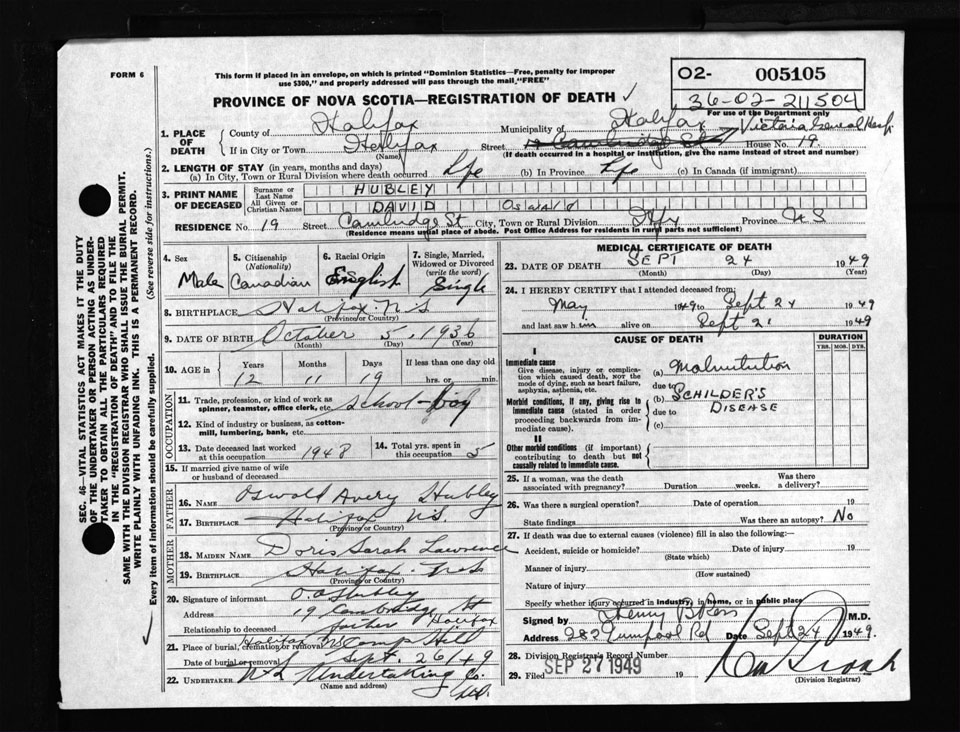 FORM 6
This form if placed in an envelope, on which is printed "Dominion Statistics—Free, penalty for improper
use $300," and properly addressed will pass through the mail, "FREE"
O2- 005105
36-02-211504
For use of the Department only
PROVINCE OF NOVA SCOTIA—REGISTRATION OF DEATH ✓
1. PLACE OF DEATH
County of Halifax Municipality of Halifax Victoria General Hosp.
If in City or Town Halifax Street 19 Cambridge St House No. 19
(Name) (If death occurred in a hospital or institution, give the name instead of street and number)
2. LENGTH OF STAY (in years, months and days)
(a) In City, Town or Rural Division where death occurred Life (b) In Province Life (c) In Canada (if immigrant)
3. PRINT NAME OF DECEASED
Surname or Last Name HUBLEY
All Given or Christian Names DAVID Oswald
RESIDENCE No. 19 Street Cambridge St City, Town or Rural Division Hfx Province N S
(Residence means usual place of abode. Post Office Address for residents in rural parts not sufficient)
4. Sex Male
5. Citizenship (Nationality) Canadian
6. Racial Origin English
7. Single, Married, Widowed or Divorced (write the word) Single
8. BIRTHPLACE Halifax N.S
(Province or Country)
9. DATE OF BIRTH October 5, 1936
(Month) (Day) (Year)
10. AGE in Years Months Days If less than one day old
12 11 19 hrs. or min.
OCCUPATION
11. Trade, profession or kind of work as spinner, teamster, office clerk, etc. School-boy
12. Kind of industry or business, as cotton-mill, lumbering, bank, etc.
13. Date deceased last worked at this occupation 1948
14. Total yrs. spent in this occupation 5
15. If married give name of wife or husband of deceased
FATHER
16. NAME Oswald Avery Hubley
17. BIRTHPLACE Halifax N.S.
(Province or Country)
MOTHER
18. MAIDEN NAME Doris Sarah Lawrence
19. BIRTHPLACE Halifax N.S
(Province or Country)
20. Signature of informant O. A Hubley
Address 19 Cambridge St Halifax
Relationship to deceased father
21. Place of burial, cremation or removal Halifax NS Camp Hill
Date of burial or removal Sept. 26/49
22. UNDERTAKER N.S Undertaking Co.
(Name and address)
MEDICAL CERTIFICATE OF DEATH
23. DATE OF DEATH SEPT 24 1949
(Month) (Day) (Year)
24. I HEREBY CERTIFY that I attended deceased from:
May 1949 to Sept 24 1949
and last saw him alive on Sept 21 1949
CAUSE OF DEATH
DURATION
YRS. MOS. DYS.
I
Immediate cause
Give disease, injury or complication which caused death, not the mode of dying, such as heart failure, asphyxia, asthenia, etc.
(a) Malnutrition
due to
Morbid conditions, if any, giving rise to immediate cause (stated in order proceeding backwards from immediate cause).
(b) SCHILDER'S DISEASE
due to
(c)
II
Other morbid conditions (if important) contributing to death but not causally related to immediate cause.
25. If a woman, was the death associated with pregnancy? Duration weeks. Was there a delivery?
26. Was there a surgical operation? Date of operation 19
State findings Was there an autopsy? No
27. If death was due to external causes (violence) fill in also the following:—
Accident, suicide or homicide? Date of injury 19
(State which)
Manner of injury
(How sustained)
Nature of injury
Specify whether injury occurred in industry, in home, or in public place
Signed by Henry B Ross M.D.
Address 282 Quinpool Rd Date Sept 24 1949.
28. Division Registrar's Record Number
29. Filed SEP 27 1949 19
(Division Registrar)
SEC. 46—VITAL STATISTICS ACT MAKES IT THE DUTY
OF THE UNDERTAKER OR PERSON ACTING AS UNDERTAKER TO OBTAIN ALL THE PARTICULARS REQUIRED
IN THE "REGISTRATION OF DEATH" AND TO FILE THE
SAME WITH THE DIVISION REGISTRAR WHO SHALL ISSUE THE BURIAL PERMIT.
WRITE PLAINLY WITH UNFADING INK. THIS IS A PERMANENT RECORD.
Every item of information should be carefully supplied. (See reverse side for instructions.)